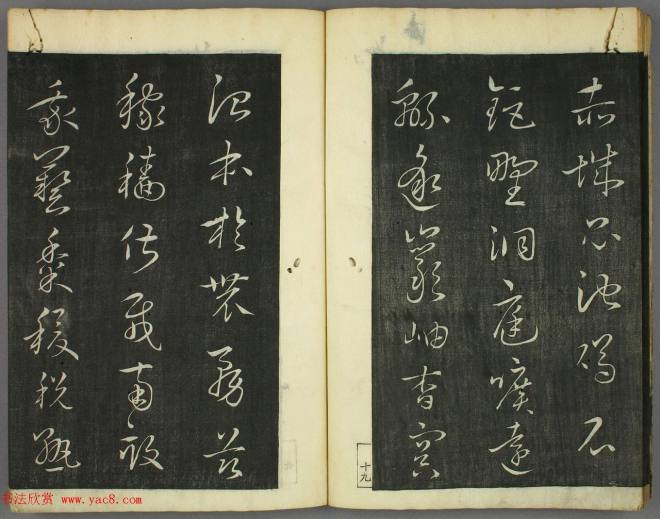 赤城昆池碣石
鉅野洞庭曠遠
緜邈巖岫杳冥
十九
治本於農務茲
稼穡俶載南畝
我藝黍稷稅熟
书法欣赏 www.yac8.com